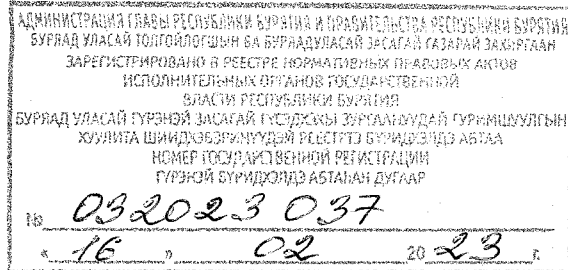 АДМИНИСТРАЦИЯ ГЛАВЫ РЕСПУБЛИКИ БУРЯТИЯ И ПРАВИТЕЛЬСТВА РЕСПУБЛИКИ БУРЯТИЯ
БУРЯАД УЛАСАЙ ТОЛГОЙЛОГШЫН БА БУРЯАД УЛАСАЙ ЗАСАГАЙ ГАЗАРАЙ ЗАХИРГААН
ЗАРЕГИСТРИРОВАНО В РЕЕСТРЕ НОРМАТИВНЫХ ПРАВОВЫХ АКТОВ
ИСПОЛНИТЕЛЬНЫХ ОРГАНОВ ГОСУДАРСТВЕННОЙ
ВЛАСТИ РЕСПУБЛИКИ БУРЯТИЯ
БУРЯАД УЛАСАЙ ГҮРЭНЭЙ ЗАСАГАЙ
РЕЕСТРТЭ БҮРИДХЭЛДЭ АБТАА
НОМЕР ГОСУДАРСТВЕННОЙ РЕГИСТРАЦИИ
ГҮРЭНЭЙ БҮРИДХЭЛДЭ АБТАҺАН ДУГААР
№ 032023 037
« 16 » 02 20 23 г.